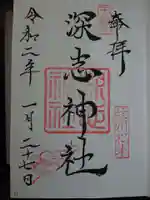 奉拝
深志神社
令和二年 一月二十七日